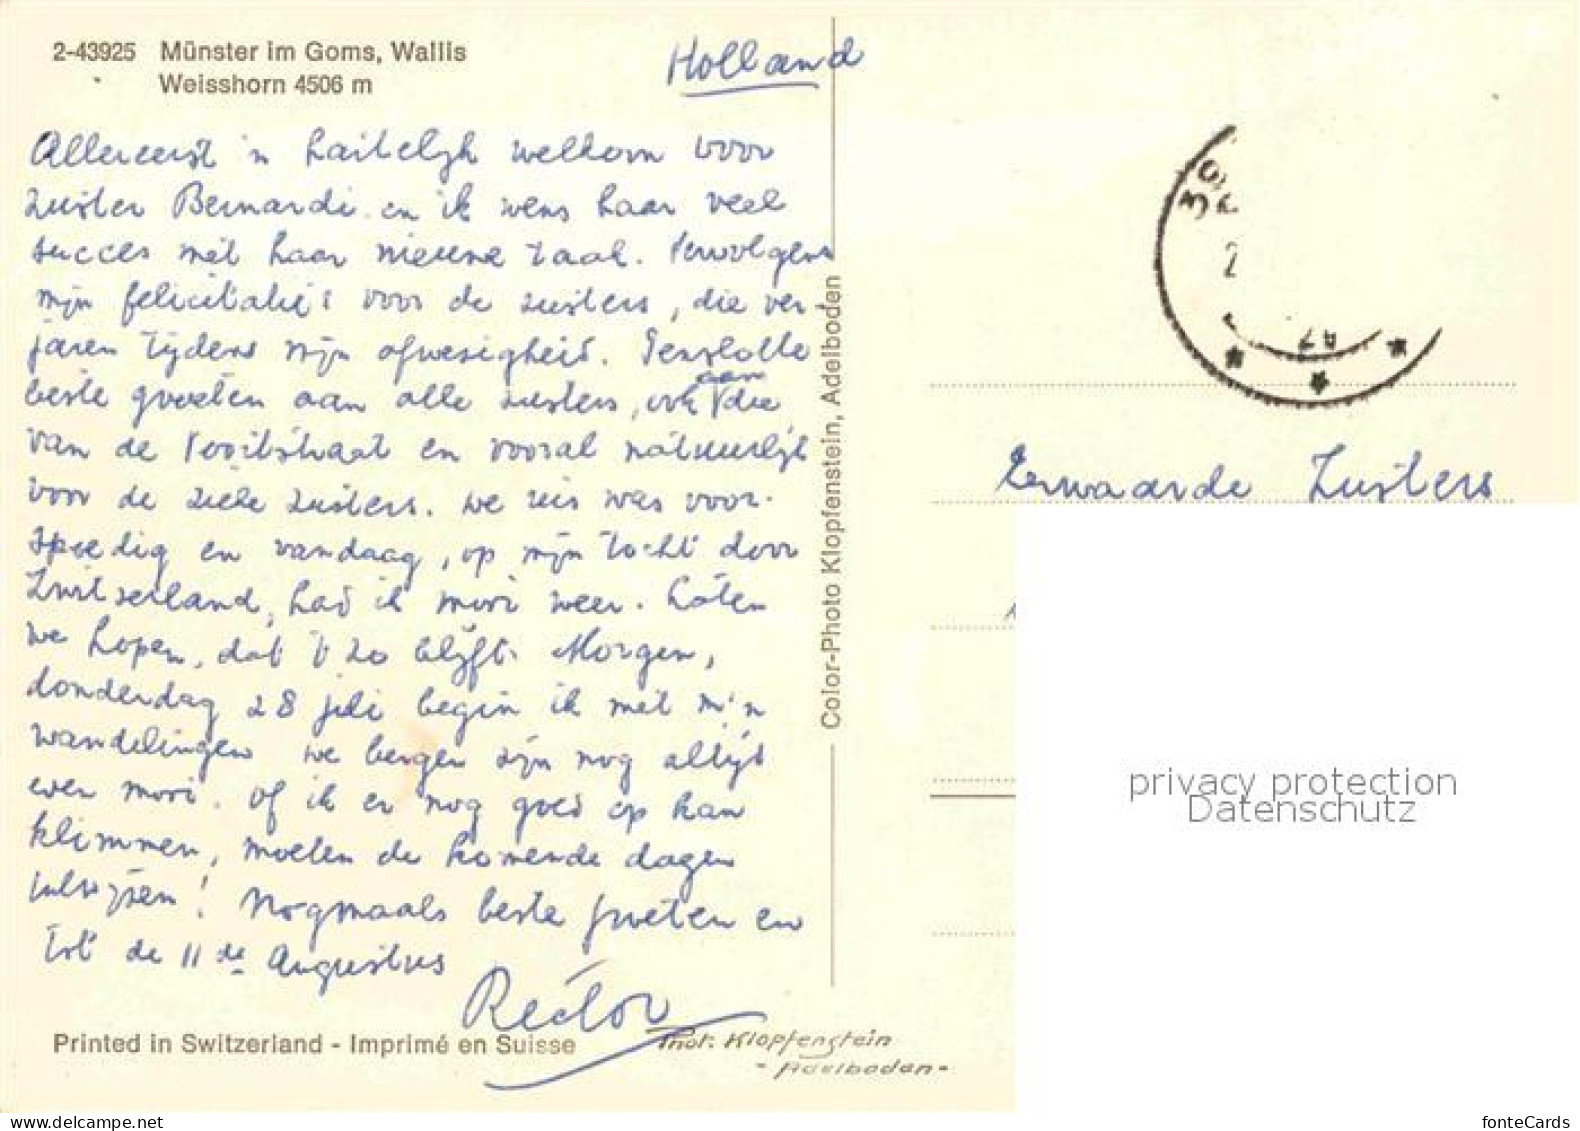 2-43925 Münster im Goms, Wallis
Weisshorn 4506 m
Holland
Allereerst 'n hartelijk welkom voor
zuster Bernardi en ik wens haar veel
succes met haar nieuwe taak. Vervolgens
mijn felicitatie's voor de zusters, die ver-
jaren tijdens mijn afwezigheid. Tenslotte
beste groeten aan alle zusters, ook aan die
van de Voorstraat en vooral natuurlijk
voor de zieke zusters. De reis was voor-
spoedig en vandaag, op mijn tocht door
Zwitserland, had ik mooi weer. Laten
we hopen, dat 't zo blijft. Morgen,
donderdag 28 juli begin ik met m'n
wandelingen de bergen zijn nog altijd
even mooi. Of ik er nog goed op kan
klimmen, moeten de komende dagen
uitwijzen! Nogmaals beste groeten en
tot de 11de Augustus
Rector
Printed in Switzerland - Imprimé en Suisse
Phot. Klopfenstein
- Adelboden -
Color-Photo Klopfenstein, Adelboden
Eerwaarde Zusters
privacy protection
Datenschutz
fonteCards